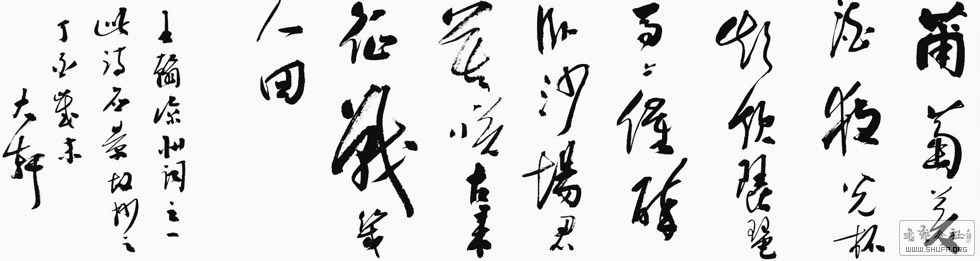 葡萄美
酒夜光杯
欲飲琵琶
馬上催醉
臥沙場君
莫笑古來
征戰幾
人回
王翰涼州詞之一
此詩 故 之
丁亥歲末
大軒
WWW.SHUFA.ORG